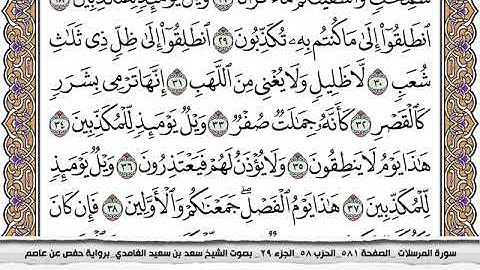 ٱنطَلِقُوٓا۟ إِلَىٰ مَا كُنتُم بِهِۦ تُكَذِّبُونَ ٢٩ ٱنطَلِقُوٓا۟ إِلَىٰ ظِلٍّ ذِى ثَلَٰثِ
شُعَبٍ ٣٠ لَّا ظَلِيلٍ وَلَا يُغْنِى مِنَ ٱللَّهَبِ ٣١ إِنَّهَا تَرْمِى بِشَرَرٍ
كَٱلْقَصْرِ ٣٢ كَأَنَّهُۥ جِمَٰلَتٌ صُفْرٌ ٣٣ وَيْلٌ يَوْمَئِذٍ لِّلْمُكَذِّبِينَ ٣٤
هَٰذَا يَوْمُ لَا يَنطِقُونَ ٣٥ وَلَا يُؤْذَنُ لَهُمْ فَيَعْتَذِرُونَ ٣٦ وَيْلٌ يَوْمَئِذٍ
لِّلْمُكَذِّبِينَ ٣٧ هَٰذَا يَوْمُ ٱلْفَصْلِ ۖ جَمَعْنَٰكُمْ وَٱلْأَوَّلِينَ ٣٨ فَإِن كَانَ
سورة المرسلات _الصفحة ٥٨١_الحزب ٥٨_الجزء ٢٩_ بصوت الشيخ سعد بن سعيد الغامدي_برواية حفص عن عاصم